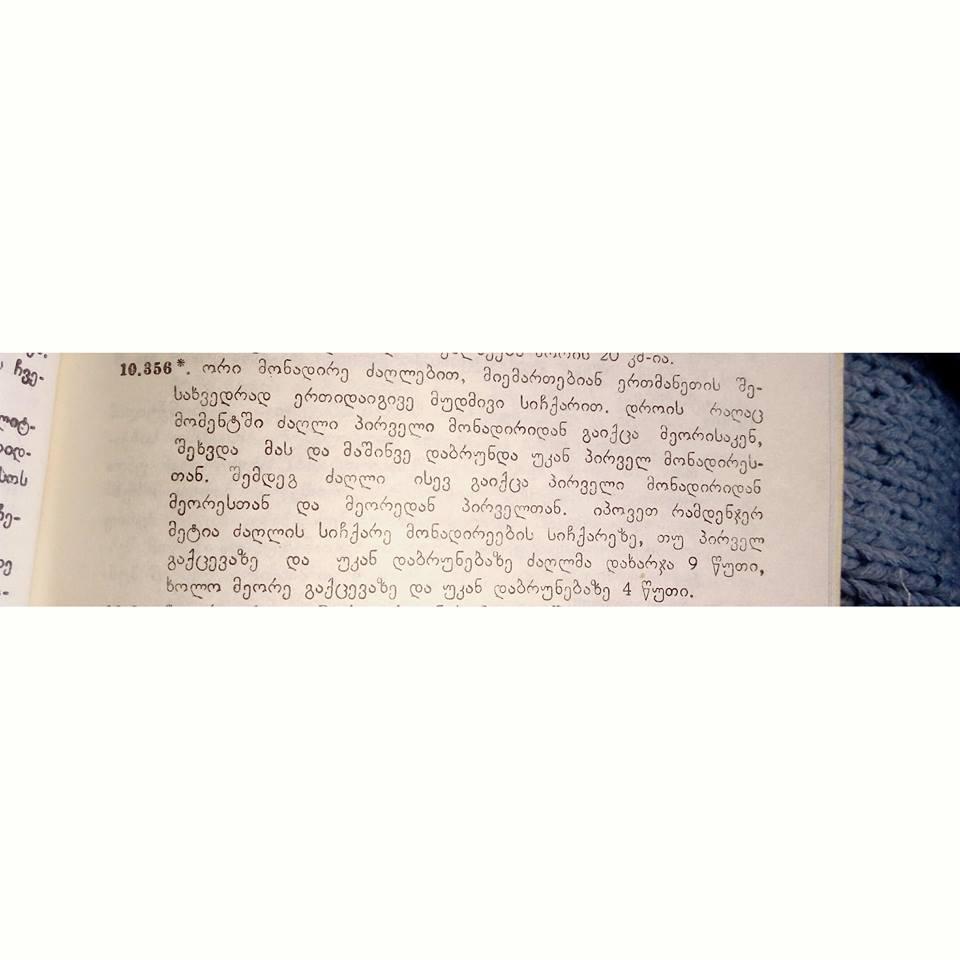 20 კმ-ია.
10.356*. ორი მონადირე ძაღლებით, მიემართებიან ერთმანეთის შე-
სახვედრად ერთიდაიგივე მუდმივი სიჩქარით. დროის რაღაც
მომენტში ძაღლი პირველი მონადირიდან გაიქცა მეორისაკენ,
შეხვდა მას და მაშინვე დაბრუნდა უკან პირველ მონადირეს-
თან. შემდეგ ძაღლი ისევ გაიქცა პირველი მონადირიდან
მეორესთან და მეორედან პირველთან. იპოვეთ რამდენჯერ
მეტია ძაღლის სიჩქარე მონადირეების სიჩქარეზე, თუ პირველ
გაქცევაზე და უკან დაბრუნებაზე ძაღლმა დახარჯა 9 წუთი,
ხოლო მეორე გაქცევაზე და უკან დაბრუნებაზე 4 წუთი.